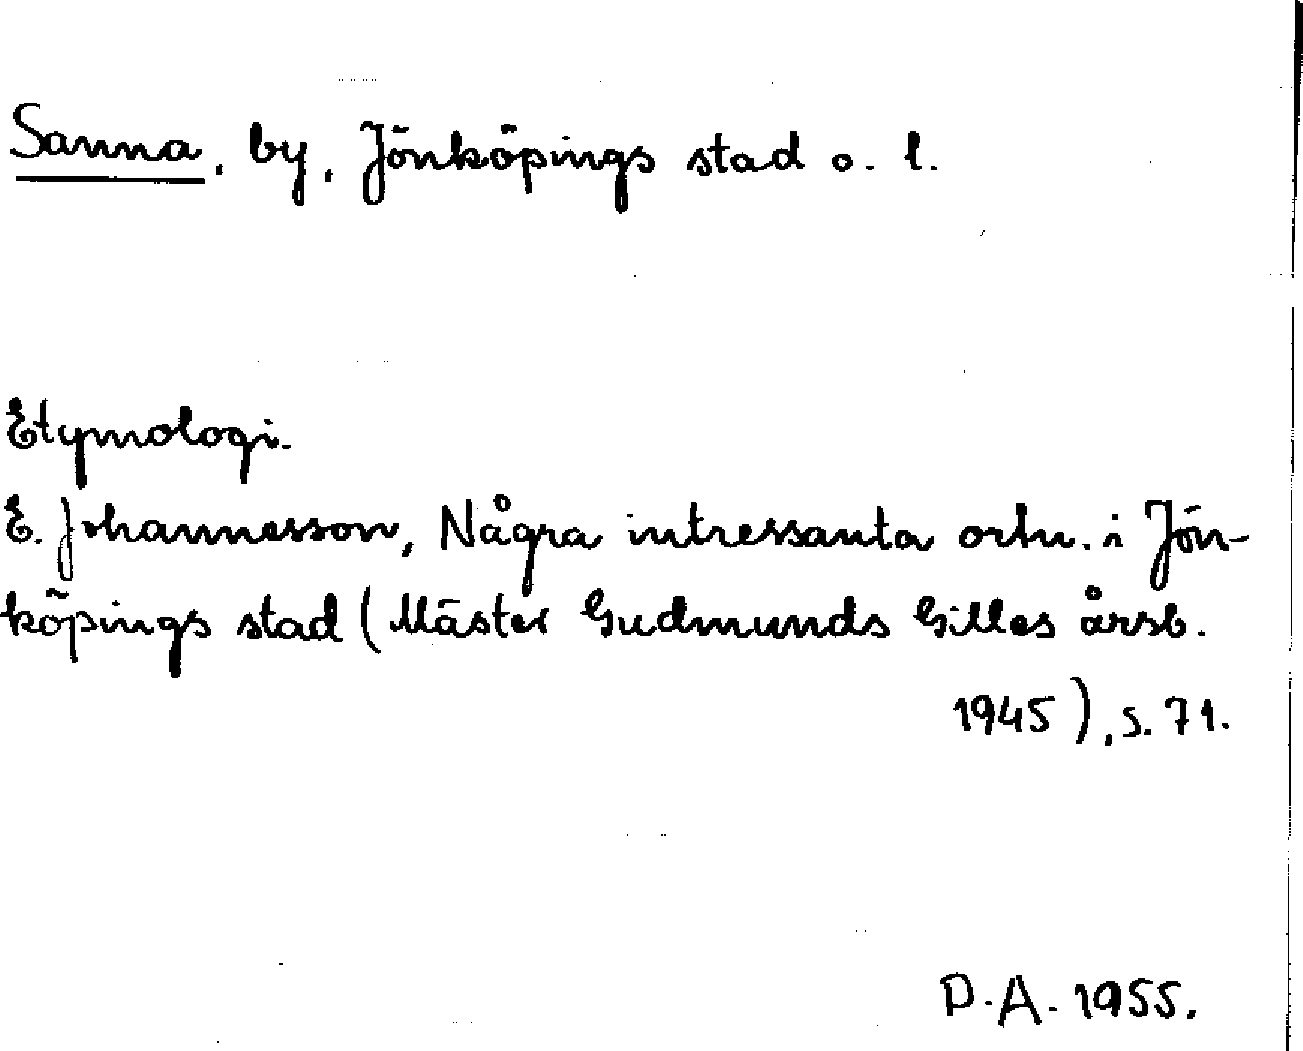 Sanna, by, Jönköpings stad o. l.
Etymologi.
E. Johannesson, Några intressanta ortn. i Jön-
köpings stad (Mäster Gudmunds Gilles årsb.
1945), s. 71.
D.A. 1955.